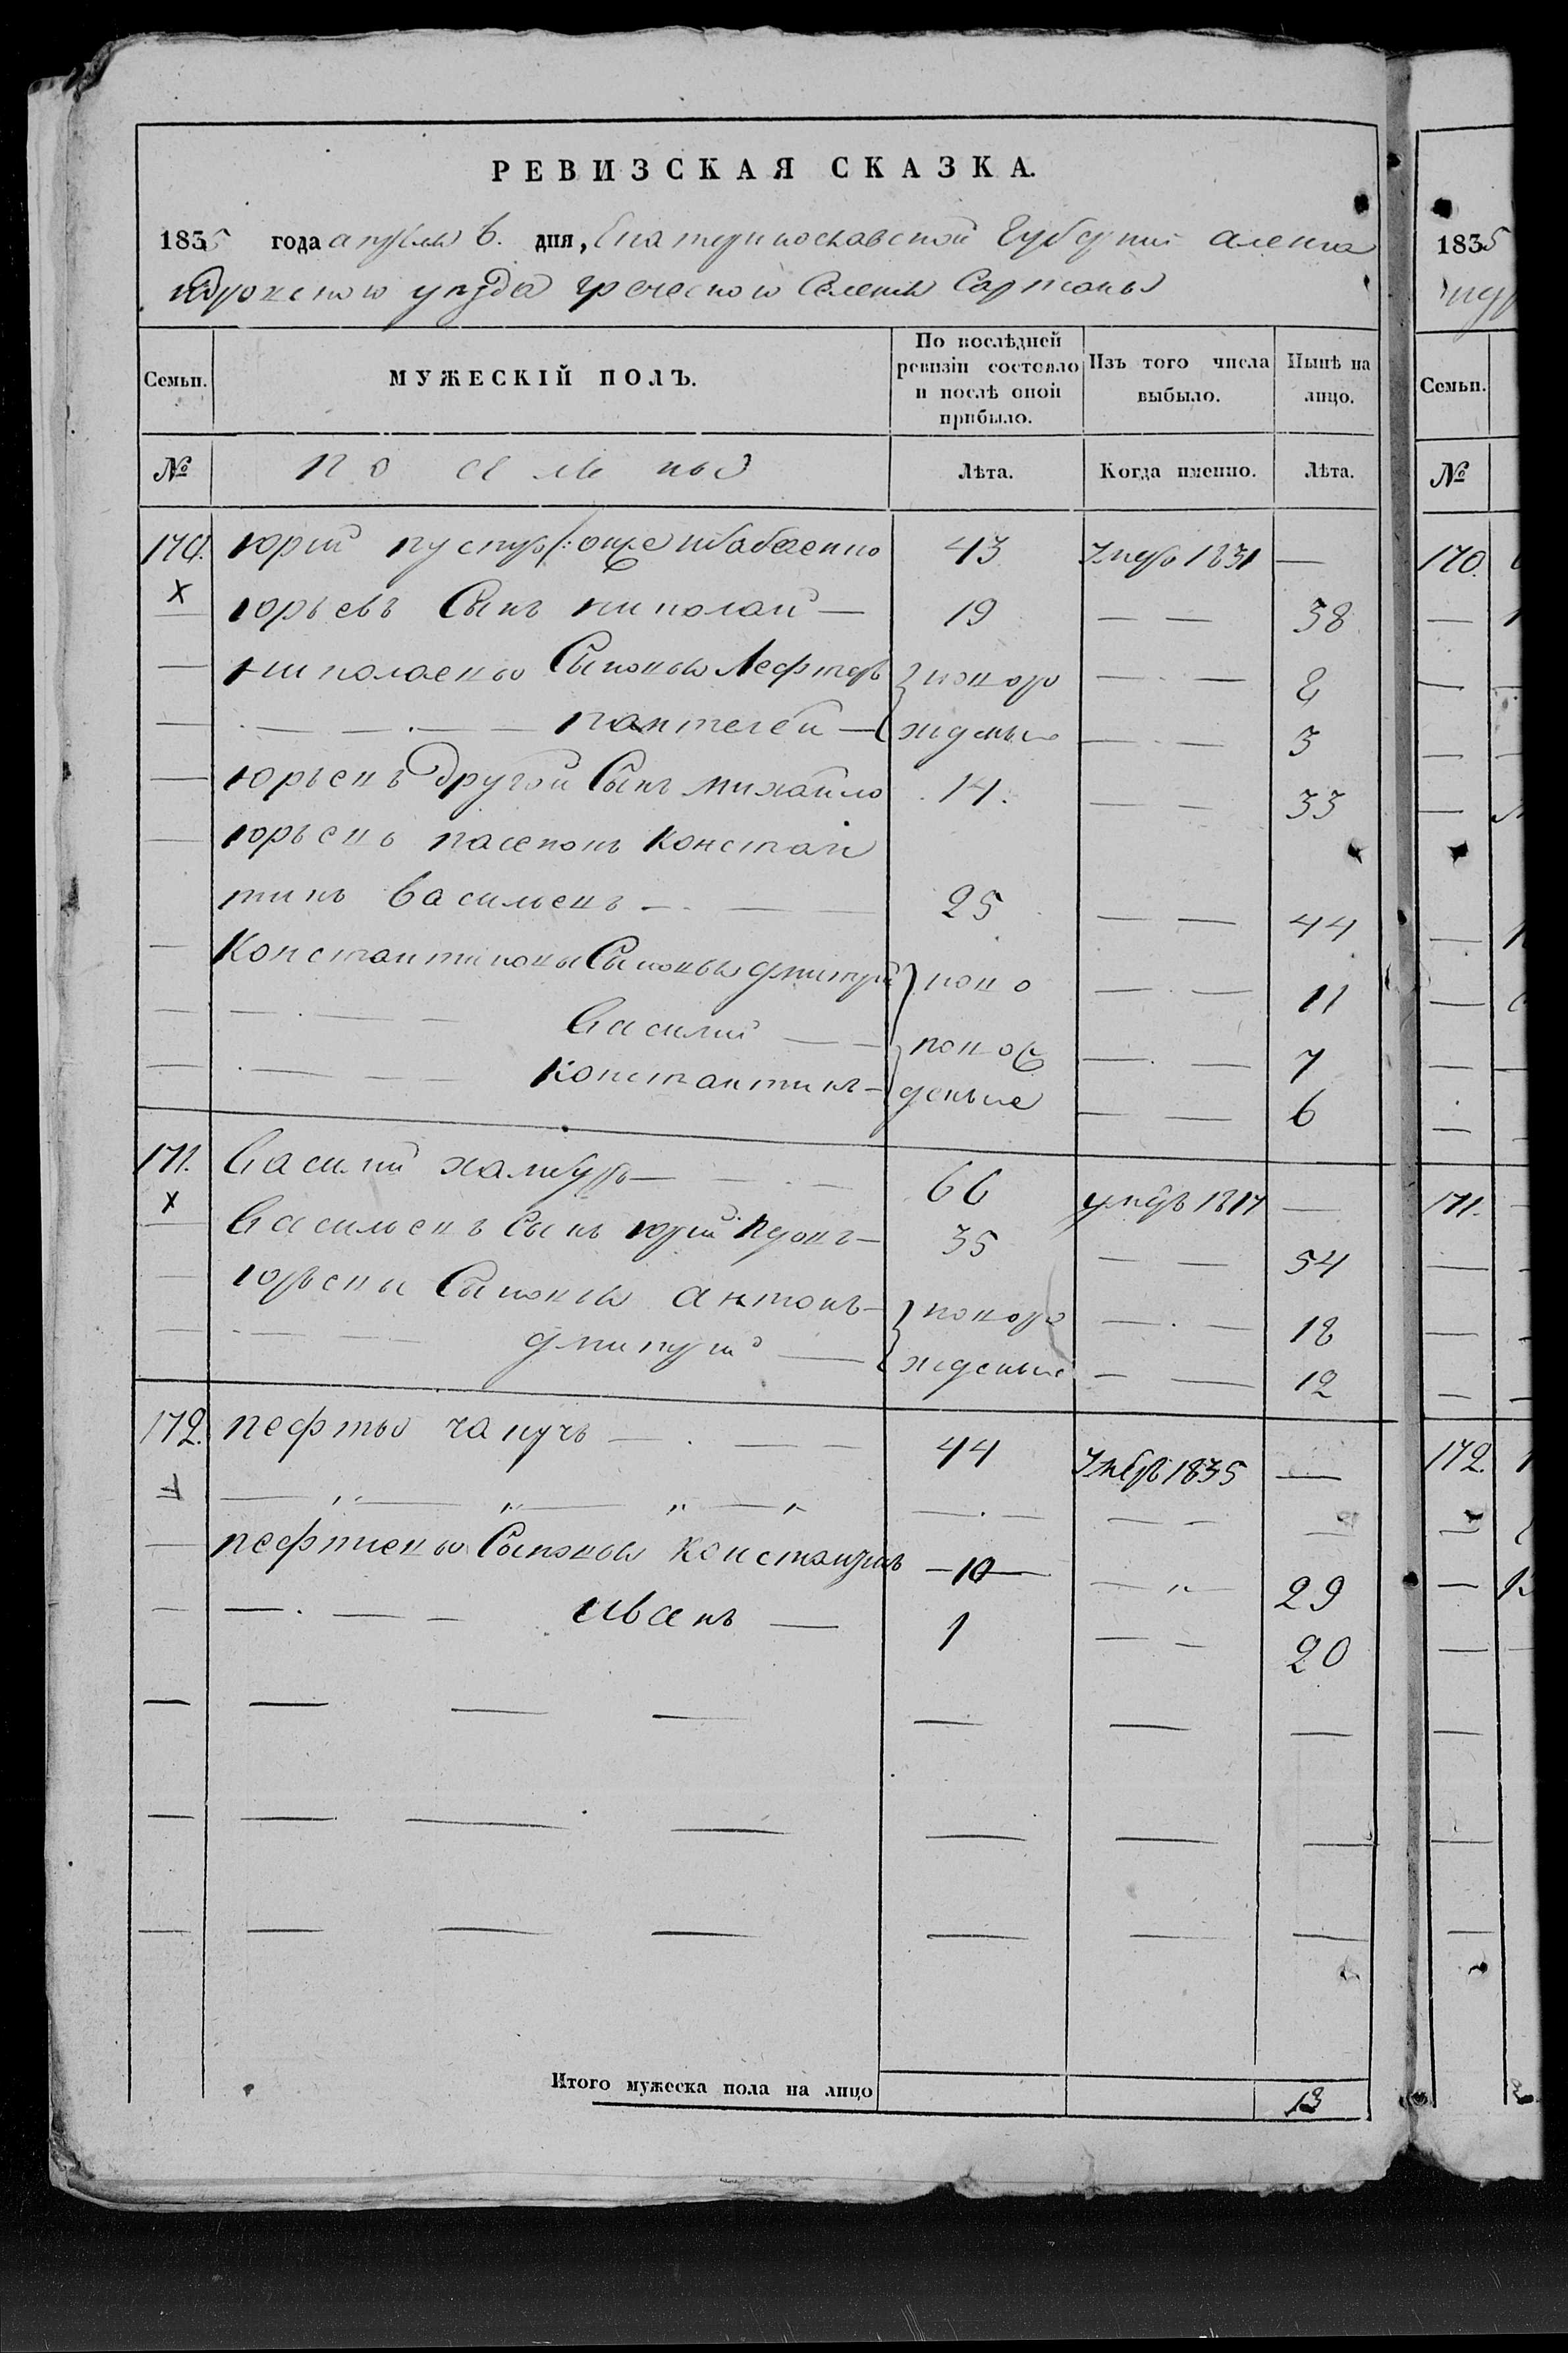 РЕВИЗСКАЯ СКАЗКА.
1835 года апреля 6. дня, Екатеринославской Губернии алекса
ндровскаго уезда греческого Селения Сартаны
Семьи. МУЖЕСКІЙ ПОЛЪ. По послѣдней ревизіи состояло и послѣ оной прибыло. Изъ того числа выбыло. Нынѣ на лицо.
№ Лѣта. Когда именно. Лѣта.
170. юрий 43 1831 —
Х юрьевъ Сынъ николай — 19 — — 38
— николаевы Сыновья Лефтеръ новоро — — 8
— — — пантелей — жденые — — 3
— юрьевъ другой Сынъ михайло 14. — — 33
— юрьевъ пасенокъ констан
тинъ васильевъ — — 25 — — 44
— Константиновы Сыновья дмитрий ново — — 11
— — — Василий — — — — 7
— — — константинъ — деные — — 6
171. Василий халлуръ — — 66 1817 —
Х Васильевъ Сынъ юрий 35 — — 54
— юрьевы Сыновья антонъ — новоро — — 18
— — — дмитрий — жденые — — 12
172. чапучъ — — 44 1835 —
— „ — „ — „ — „ — — — — —
— Сыновья константинъ — 10 — — „ — 29
— — — иванъ — 1 — — 20
— — — — — — —
— — — — — — —
— — — — — — —
Итого мужеска пола на лицо 13
1835
Семьи.
№
170.
171.
172.